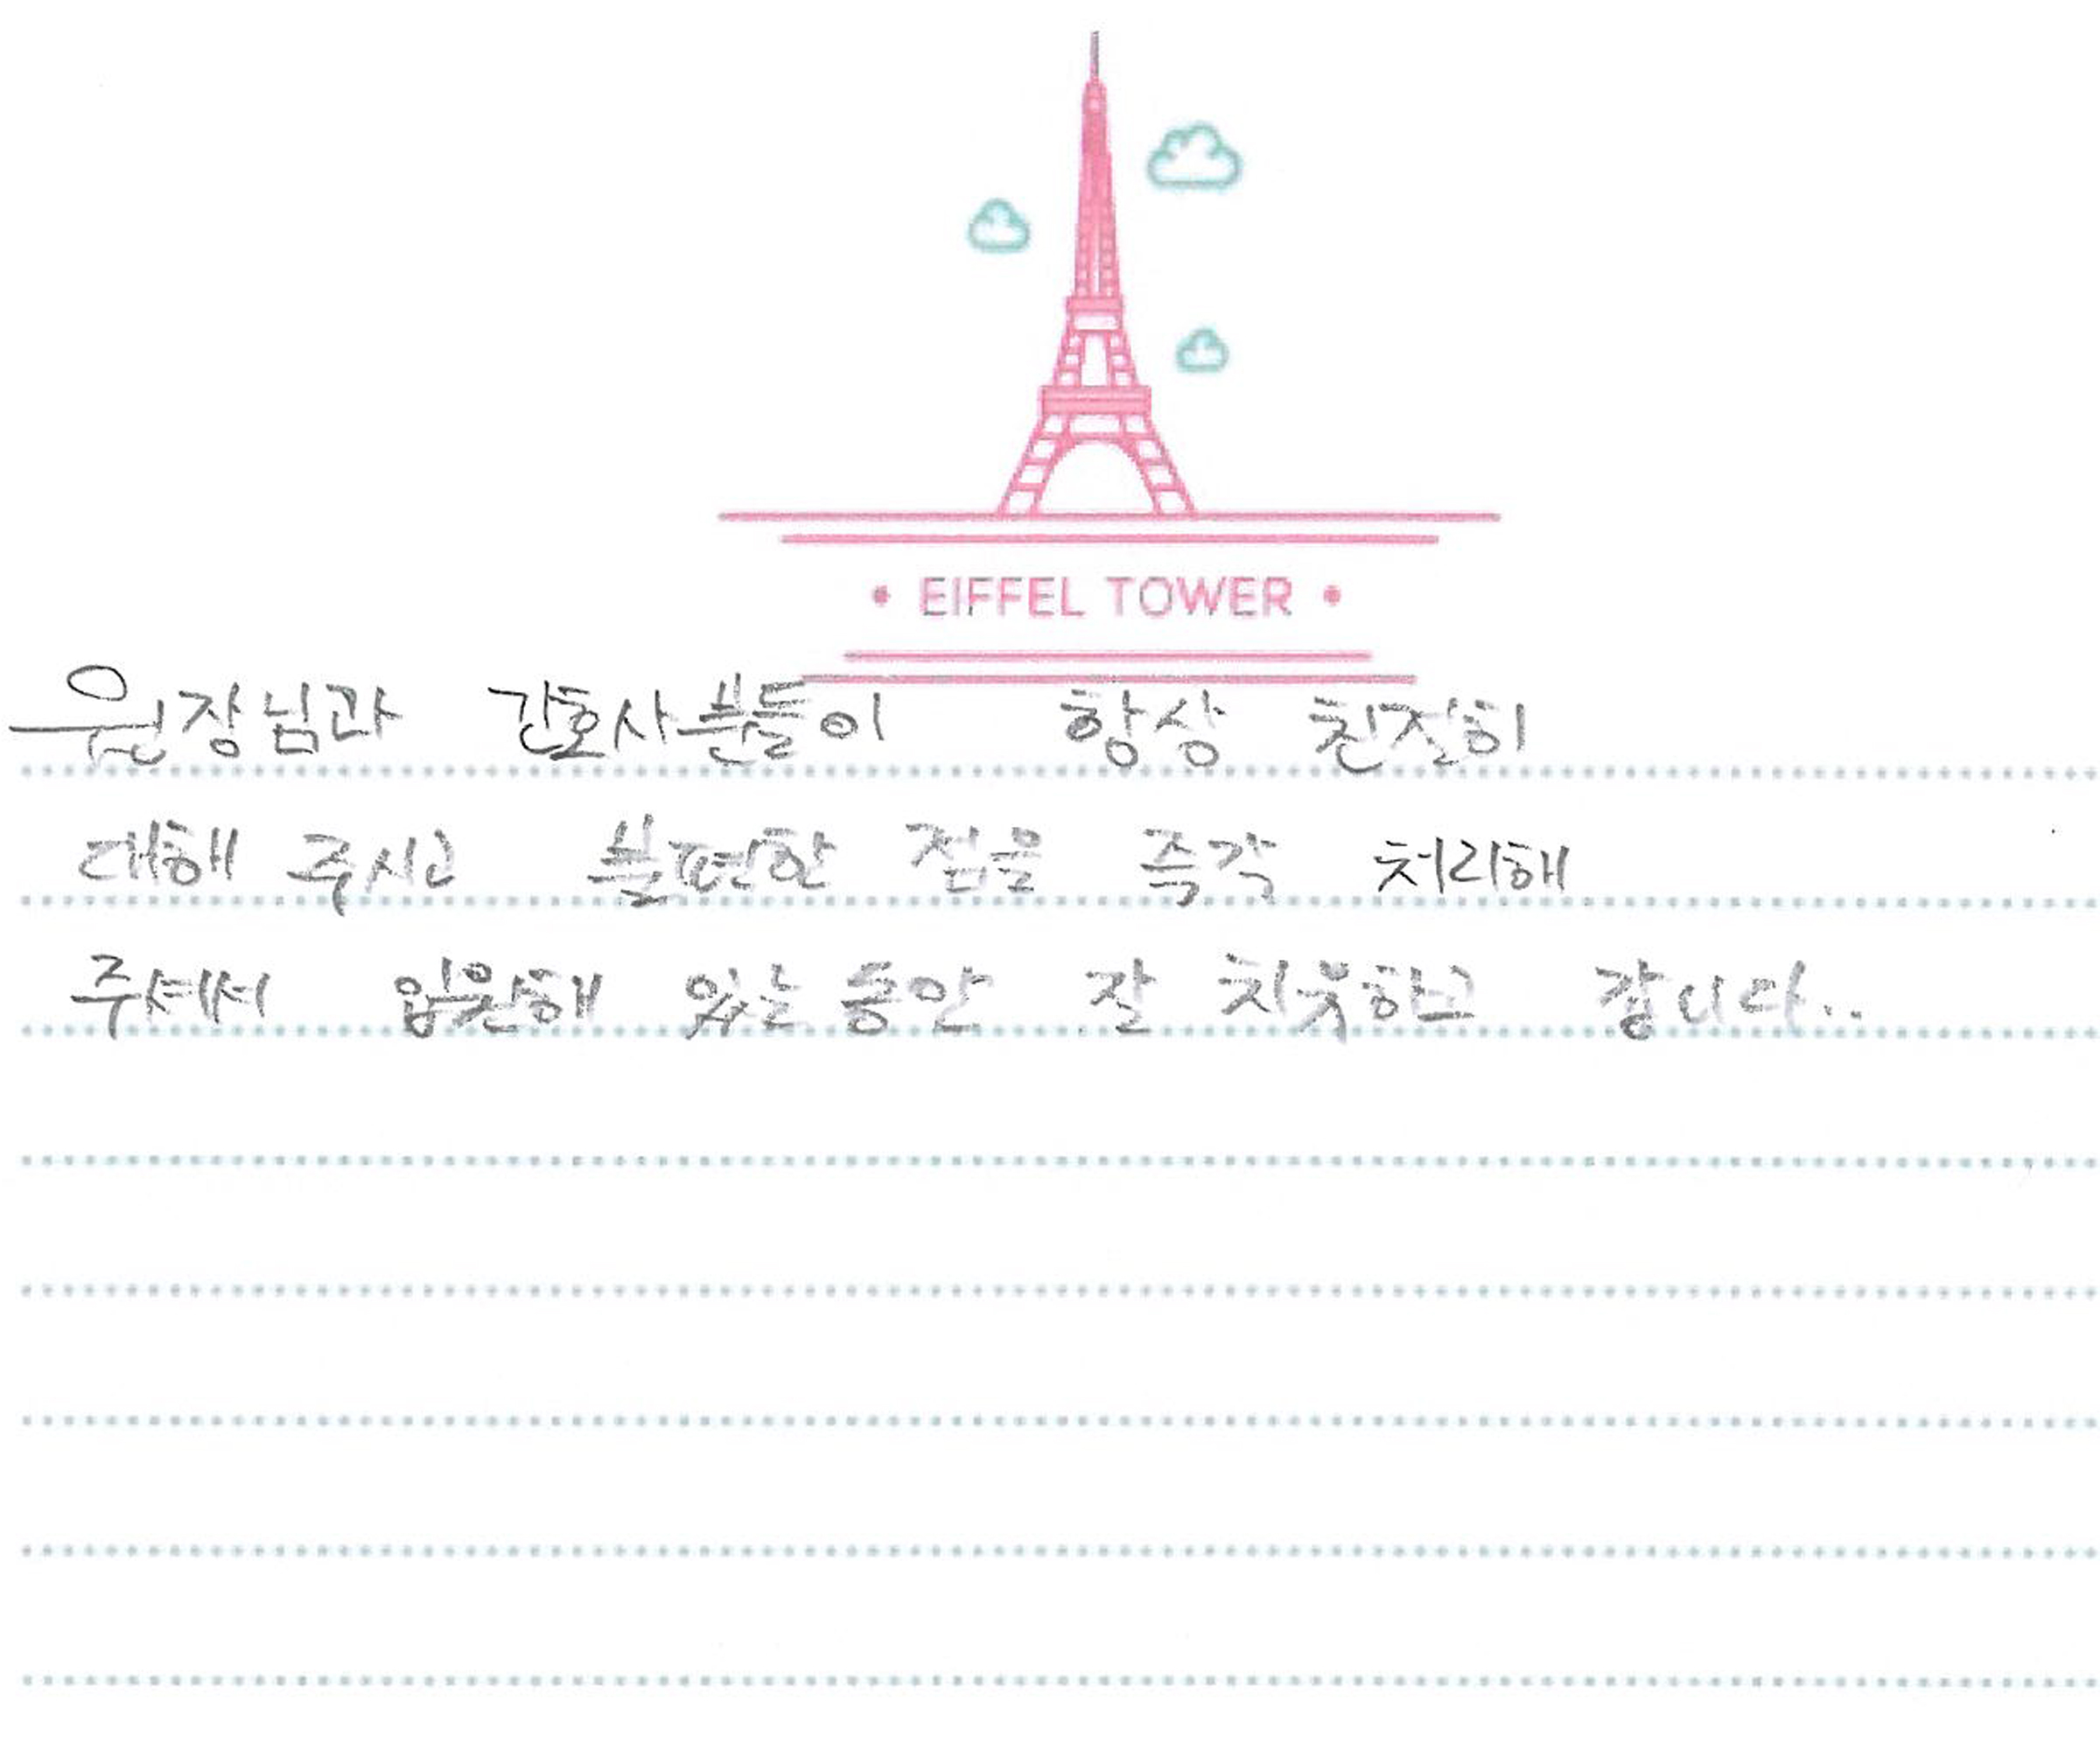 • EIFFEL TOWER •
원장님과 간호사분들이 항상 친절히
대해 주시고 불편한 점을 즉각 처리해
주셔서 입원해 있는 동안 잘 치웃하고 갑니다..